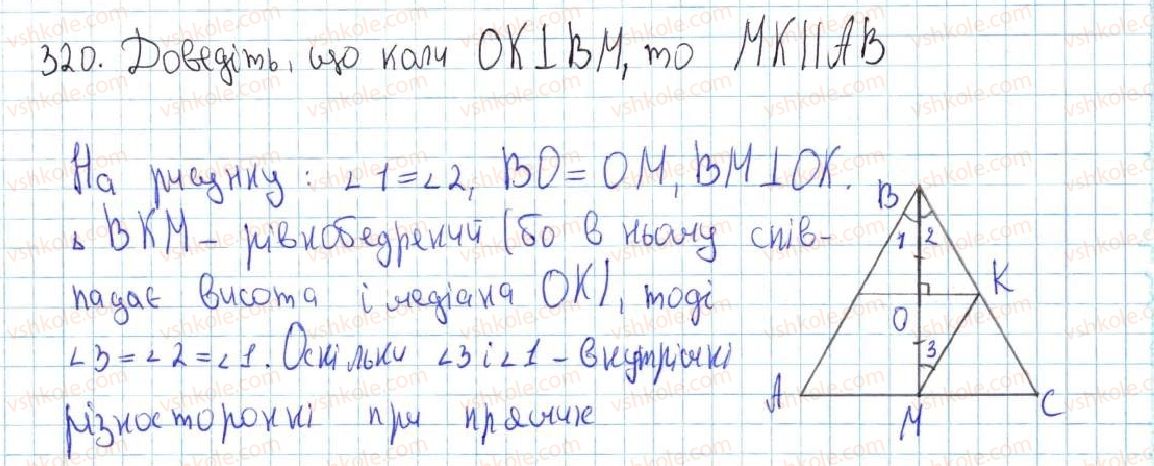 320. Доведіть, що коли OK⊥BM, то MK||AB
На рисунку: ∠1=∠2, BO=OM, BM⊥OK.
△ BKM – рівнобедрений (бо в ньому спів-
падає висота і медіана OK), тоді
∠3=∠2=∠1. Оскільки ∠3 і ∠1 – внутрішні
різносторонні при прямих
B
1 2
K
O
3
A
M
C